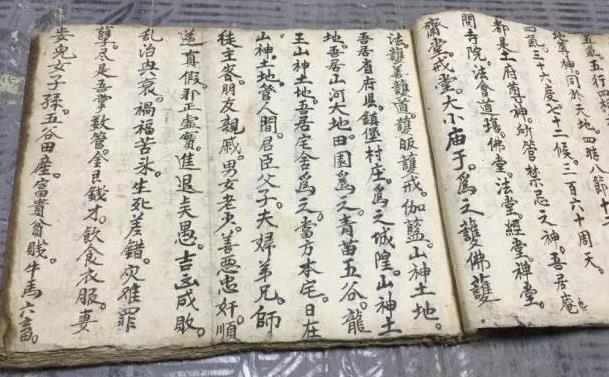 五氣五行四時八節十二
四氣。三十六度七十二候。三百六十周天。
都是土府尊神。所管禁忌之神。吾居庵
関寺院。法會道塲佛堂。法堂。經堂禪堂。
齋堂戒堂。大小庙于。爲之護佛護
法護善護道。護皈護戒。伽藍。山神土地。
吾居省府县。鎮堡村庄爲之城隍。山神土
地。吾居山河大地。田園爲之。青苗五谷。龍
王山神土地。吾居宅舍爲之。當方本宅。日在
山神土地。管人間。君臣父子。夫婦弟兄。師
徒主客朋友親戚。男女老少。善惡忠奸順
逆真假。邪正虛實。進退贤愚。吉凶成敗。
乱治興衰。禍福苦乐。生死差錯。灾难罪
孽。尽是吾掌数。管金艮錢才。飲食衣服。妻
妾兒女子孫。五谷田産。富貴貧賤。牛馬六畜。